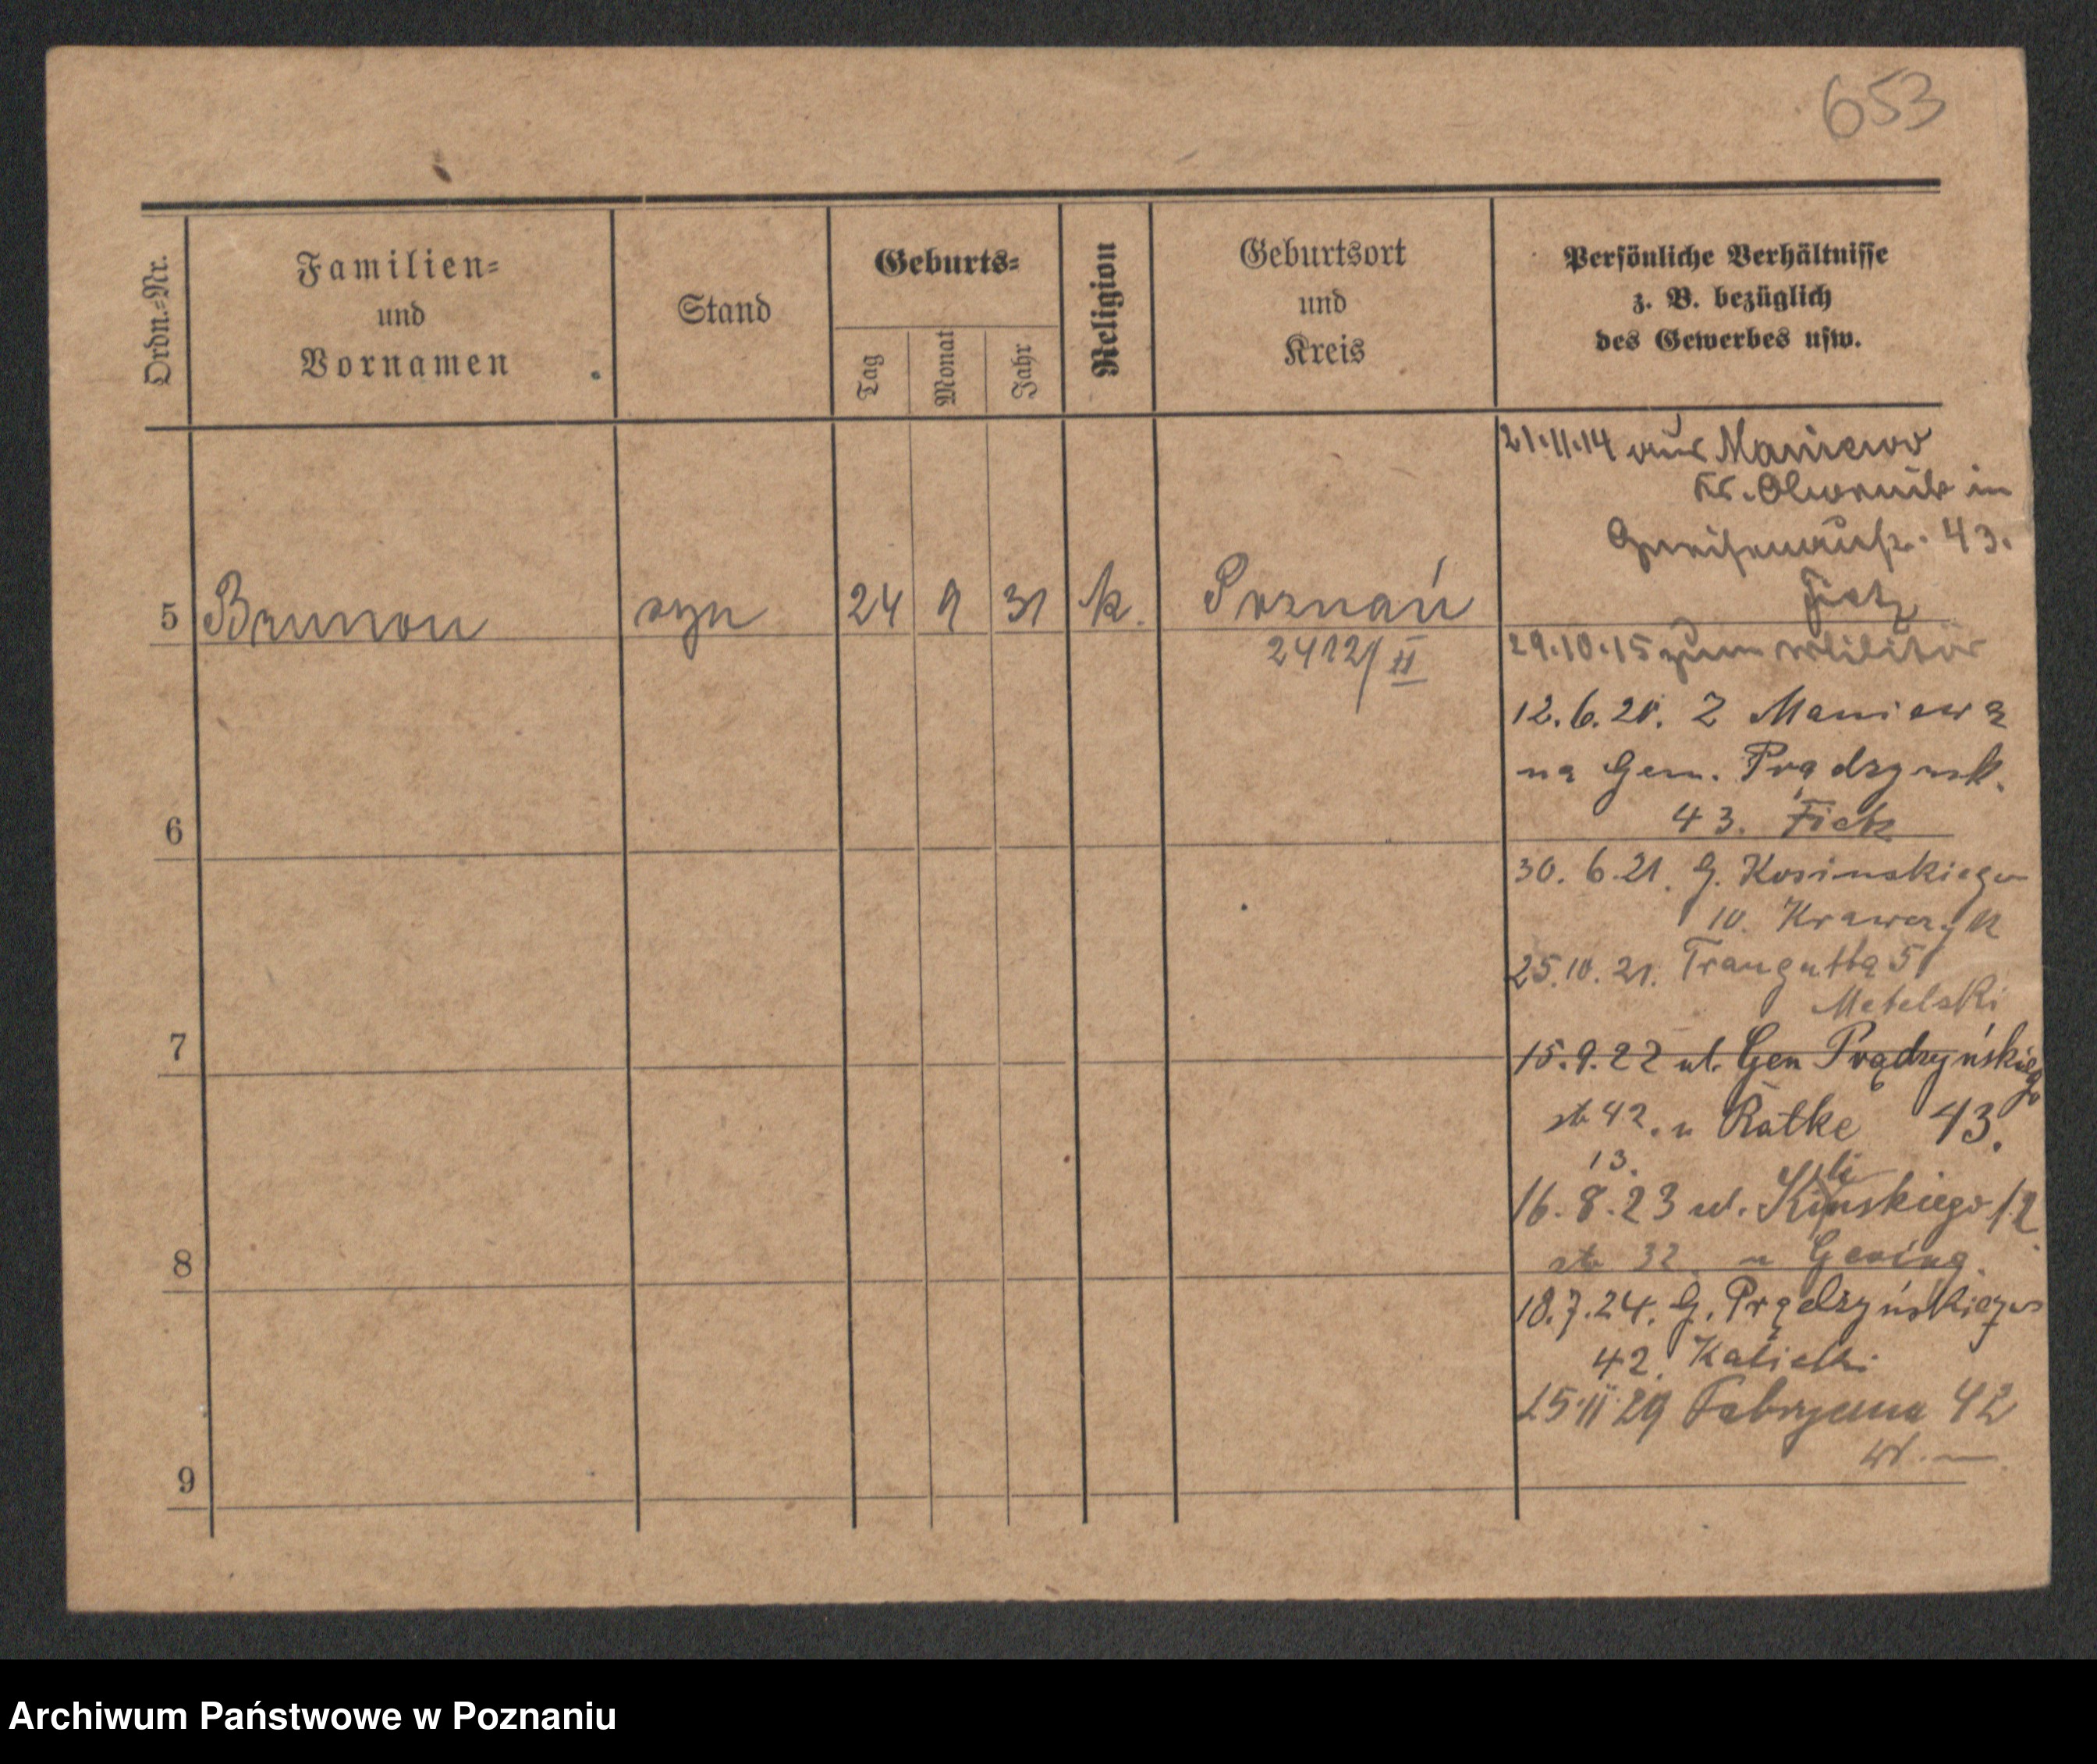 653
Ordn.=Nr.
Familien=
und
Vornamen
Stand
Geburts=
Tag
Monat
Jahr
Religion
Geburtsort
und
Kreis
Persönliche Verhältnisse
z. B. bezüglich
des Gewerbes usw.
21.11.14 aus Maniewo
Kr. Obornik in
43.
5 Brunon syn 24 9 31 k. Poznań
2412/II
29.10.15 zum Militär
12.6.20. Z Maniewa
na Gen. Prądzynsk.
43. Fick
6
30.6.21. G. Kosinskiego
10. Krawczyk
25.10.21. Traugutta 5
Metelski
7
15.9.22 ul. Gen Prądzyńskiego
st 42. u Ratke 43.
13.
16.8.23 ul. 12
st 32 u
8
18.7.24. G. Prądzyńskiego
42. Kalicki
25 11 29 Fabryczna 42
9
Archiwum Państwowe w Poznaniu